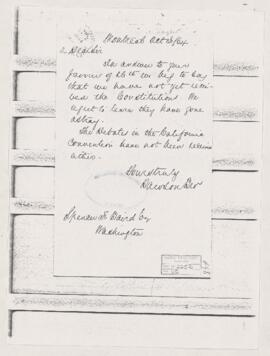 Montreal Oct
Dear Sir
In answer to your
favour of 26th we beg to say
that we have not yet recei
ved the Constitutions. We
regret to learn they have gone
astray.
The Debates in the California
Convention have not been received
either.
Yours truly
Dawson Bros
Spencer F Baird Esq
Washington